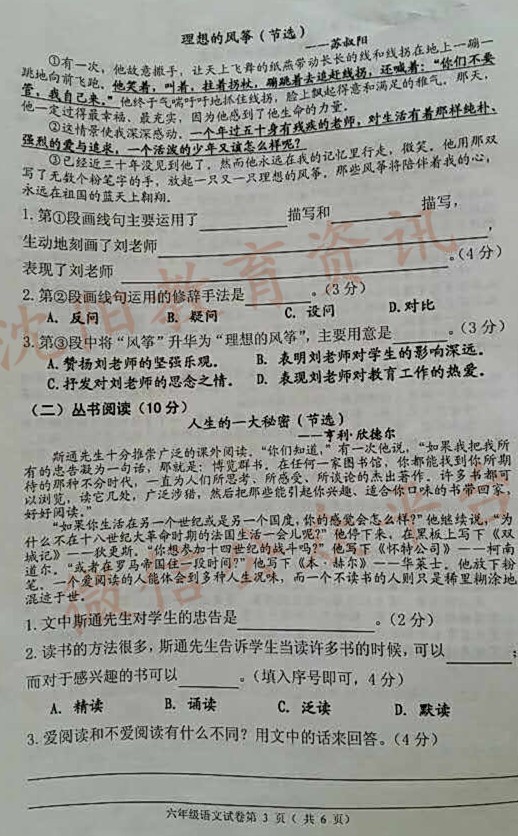 理想的风筝（节选）
——苏叔阳
①有一次，他故意撒手，让天上飞舞的纸燕带动长长的线和线拐在地上一蹦一
跳地向前飞跑。他笑着，叫着，拄着拐杖，蹦跳着去追赶线拐，还喊着：“你们不要
管，我自己来。”他终于气喘吁吁地抓住线拐，脸上飘起得意和满足的稚气。那天，
他一定过得最幸福、最充实，因为他感到了他生命的力量。
②这情景使我深深感动。一个年过五十身有残疾的老师，对生活有着那样纯朴、
强烈的爱与追求，一个活泼的少年又该怎么样呢？
③已经近三十年没见到他了。然而他永远在我的记忆里行走、微笑。他用那双
写了无数个粉笔字的手，放起一只又一只理想的风筝。那些风筝将陪伴着我的心，
永远在祖国的蓝天上翱翔。
1. 第①段画线句主要运用了 描写和 描写，
生动地刻画了刘老师 ，
表现了刘老师 。（4分）
2. 第②段画线句运用的修辞手法是 。（3分）
A. 反问 B. 疑问 C. 设问 D. 对比
3. 第③段中将“风筝”升华为“理想的风筝”，主要用意是 。（3分）
A. 赞扬刘老师的坚强乐观。 B. 表明刘老师对学生的影响深远。
C. 抒发对刘老师的思念之情。 D. 表现刘老师对教育工作的热爱。
（二）丛书阅读（10分）
人生的一大秘密（节选）
——亨利·欣德尔
斯通先生十分推崇广泛的课外阅读。“你们知道，”有一次他说，“如果我把我所
有的忠告凝为一句话，那就是：博览群书。在任何一家图书馆，你都能找到你所期
待的那种不分时代，一直为人们所思考、所感受、所谈论的杰出著作。许多书都可
以浏览，读它几处，广泛涉猎，然后把那些能引起你兴趣、适合你口味的书带回家，
好好阅读。”
“如果你生活在另一个世纪或是另一个国度，你的感觉会怎么样？”他继续说，“为
什么不在十八世纪大革命时期的法国生活一会儿呢？”他停下来，在黑板上写下《双
城记》——狄更斯。“你想参加十四世纪的战斗吗？”他写下《怀特公司》——柯南
道尔。“或者在罗马帝国住一段时间？”他写下《本·赫尔》——华莱士。他放下粉
笔。“一个爱阅读的人能体会到多种人生况味，而一个不读书的人则只是稀里糊涂地
混迹于世。
1. 文中斯通先生对学生的忠告是 。（2分）
2. 读书的方法很多，斯通先生告诉学生当读许多书的时候，可以 ；
而对于感兴趣的书可以 。（填入序号即可，4分）
A. 精读 B. 诵读 C. 泛读 D. 默读
3. 爱阅读和不爱阅读有什么不同？用文中的话来回答。（4分）
六年级语文试卷第 3 页（ 共 6 页）
沈阳教育资讯